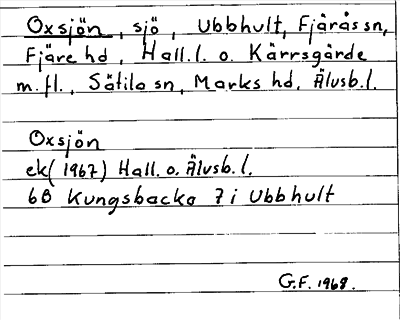 Oxsjön, sjö, Ubbhult, Fjärås sn,
Fjäre hd, Hall.l. o. Kärrsgärde
m.fl., Sätila sn, Marks hd, Älvsb.l.
Oxsjön
ek(1967) Hall.o.Älvsb.l.
6B Kungsbacka 7i Ubbhult
G.F. 1968.